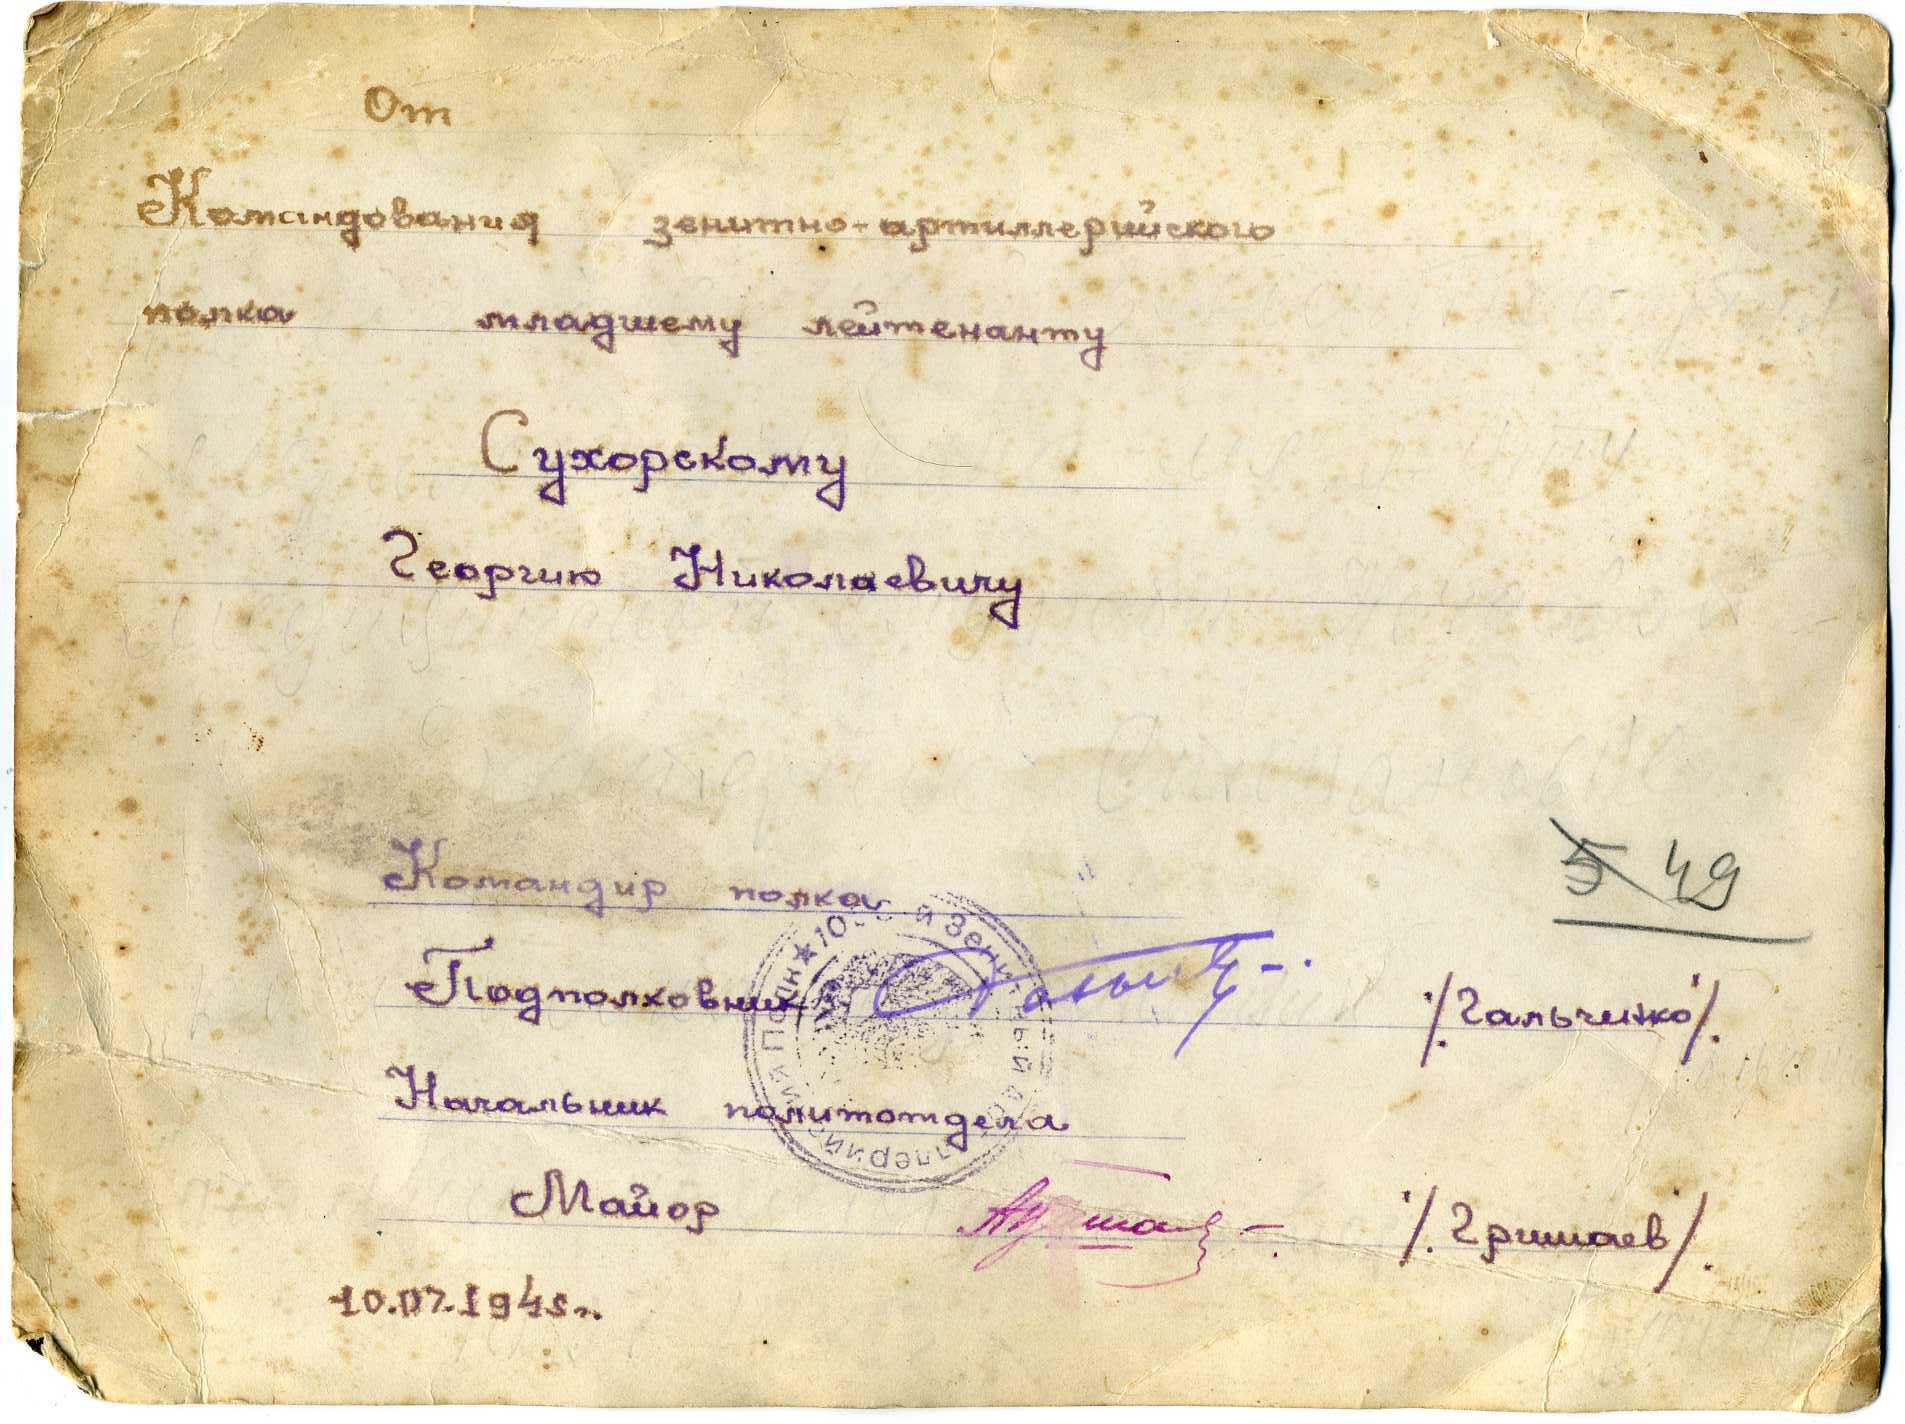 От
Командования зенитно-артиллерийского
полка младшему лейтенанту
Сухорскому
Георгию Николаевичу
5 49
Командир полка
Подполковник /Гальченко/.
Начальник политотдела
Майор /Гришаев/.
10.07.1945г.
Зенитный Артиллерийский Полк